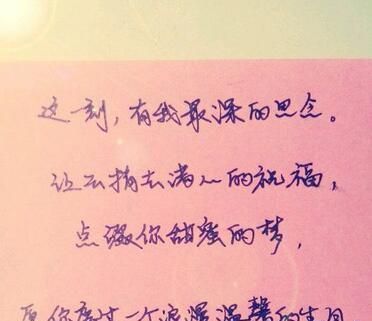 这一刻,有我最深的思念。
让云捎去满心的祝福,
点缀你甜蜜的梦,
愿你度过一个浪漫温馨的生日